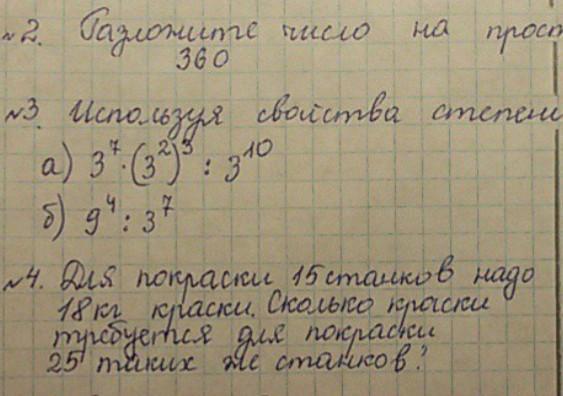 №2. Разложите число на прост
360
№3 Используя свойства степени
а) 3⁷·(3²)³ : 3¹⁰
б) 9⁴ : 3⁷
№4. Для покраски 15 станков надо
18 кг краски. Сколько краски
требуется для покраски
25 таких же станков?